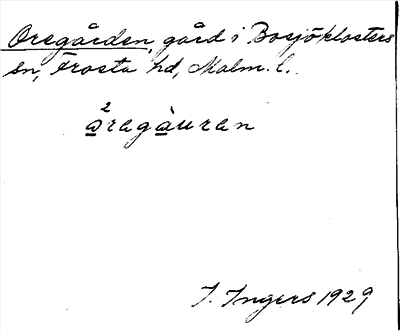 Oregården, gård i Bosjöklosters
sn, Frosta hd, Malm. l.
2
åragàuran
I. Ingers 1929